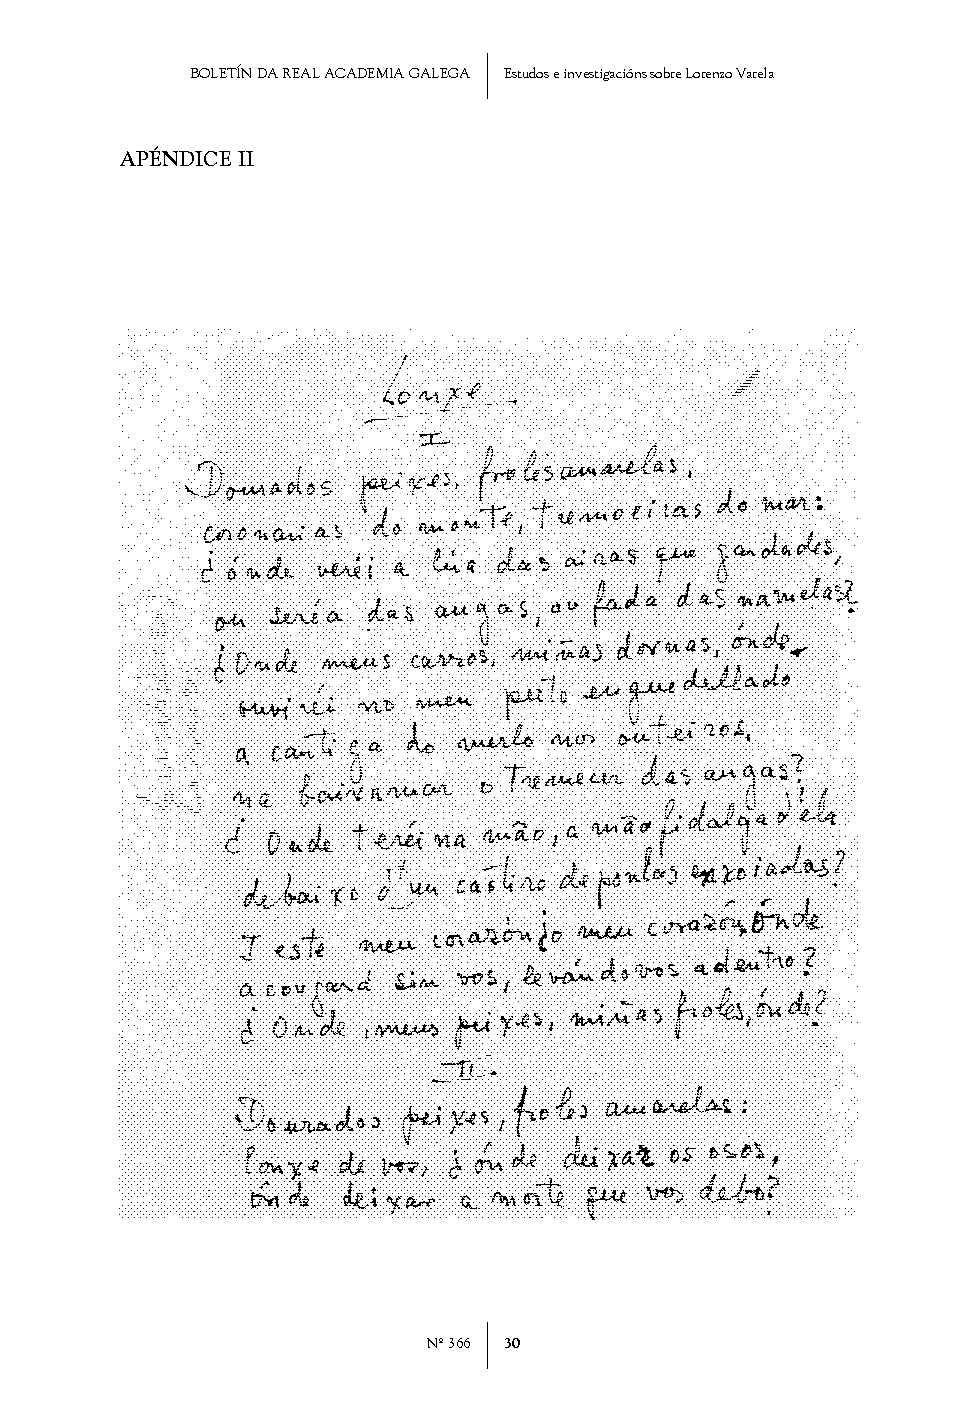 BOLETÍN DA REAL ACADEMIA GALEGA
Estudos e investigacións sobre Lorenzo Varela
APÉNDICE II
Lonxe.
I
Dourados peixes, froles amarelas,
coronarias do monte, tremoeiras do mar:
¿ónde veréi a lúa das airas que gardades,
ou seréa das augas, ou fada das mamelas?
¿Onde meus carros, miñas dornas, ónde
ouviréi no meu peito enguedellado
a cantiga do merlo nos outeiros,
na baixamar o tremecer das augas?
¿Onde teréi na mão, a mão fidalga d'ela
debaixo d'un castiro de pontas enxoiadas?
I este meu corazón, jo meu corazón, Ónde
acougará sin vos, levándovos adentro?
¿Onde, meus peixes, miñas froles, ónde?
II.
Dourados peixes, froles amarelas:
lonxe de vos, ¿ónde deixar os osos,
ónde deixar a morte que vos debo?
Nº 366
30